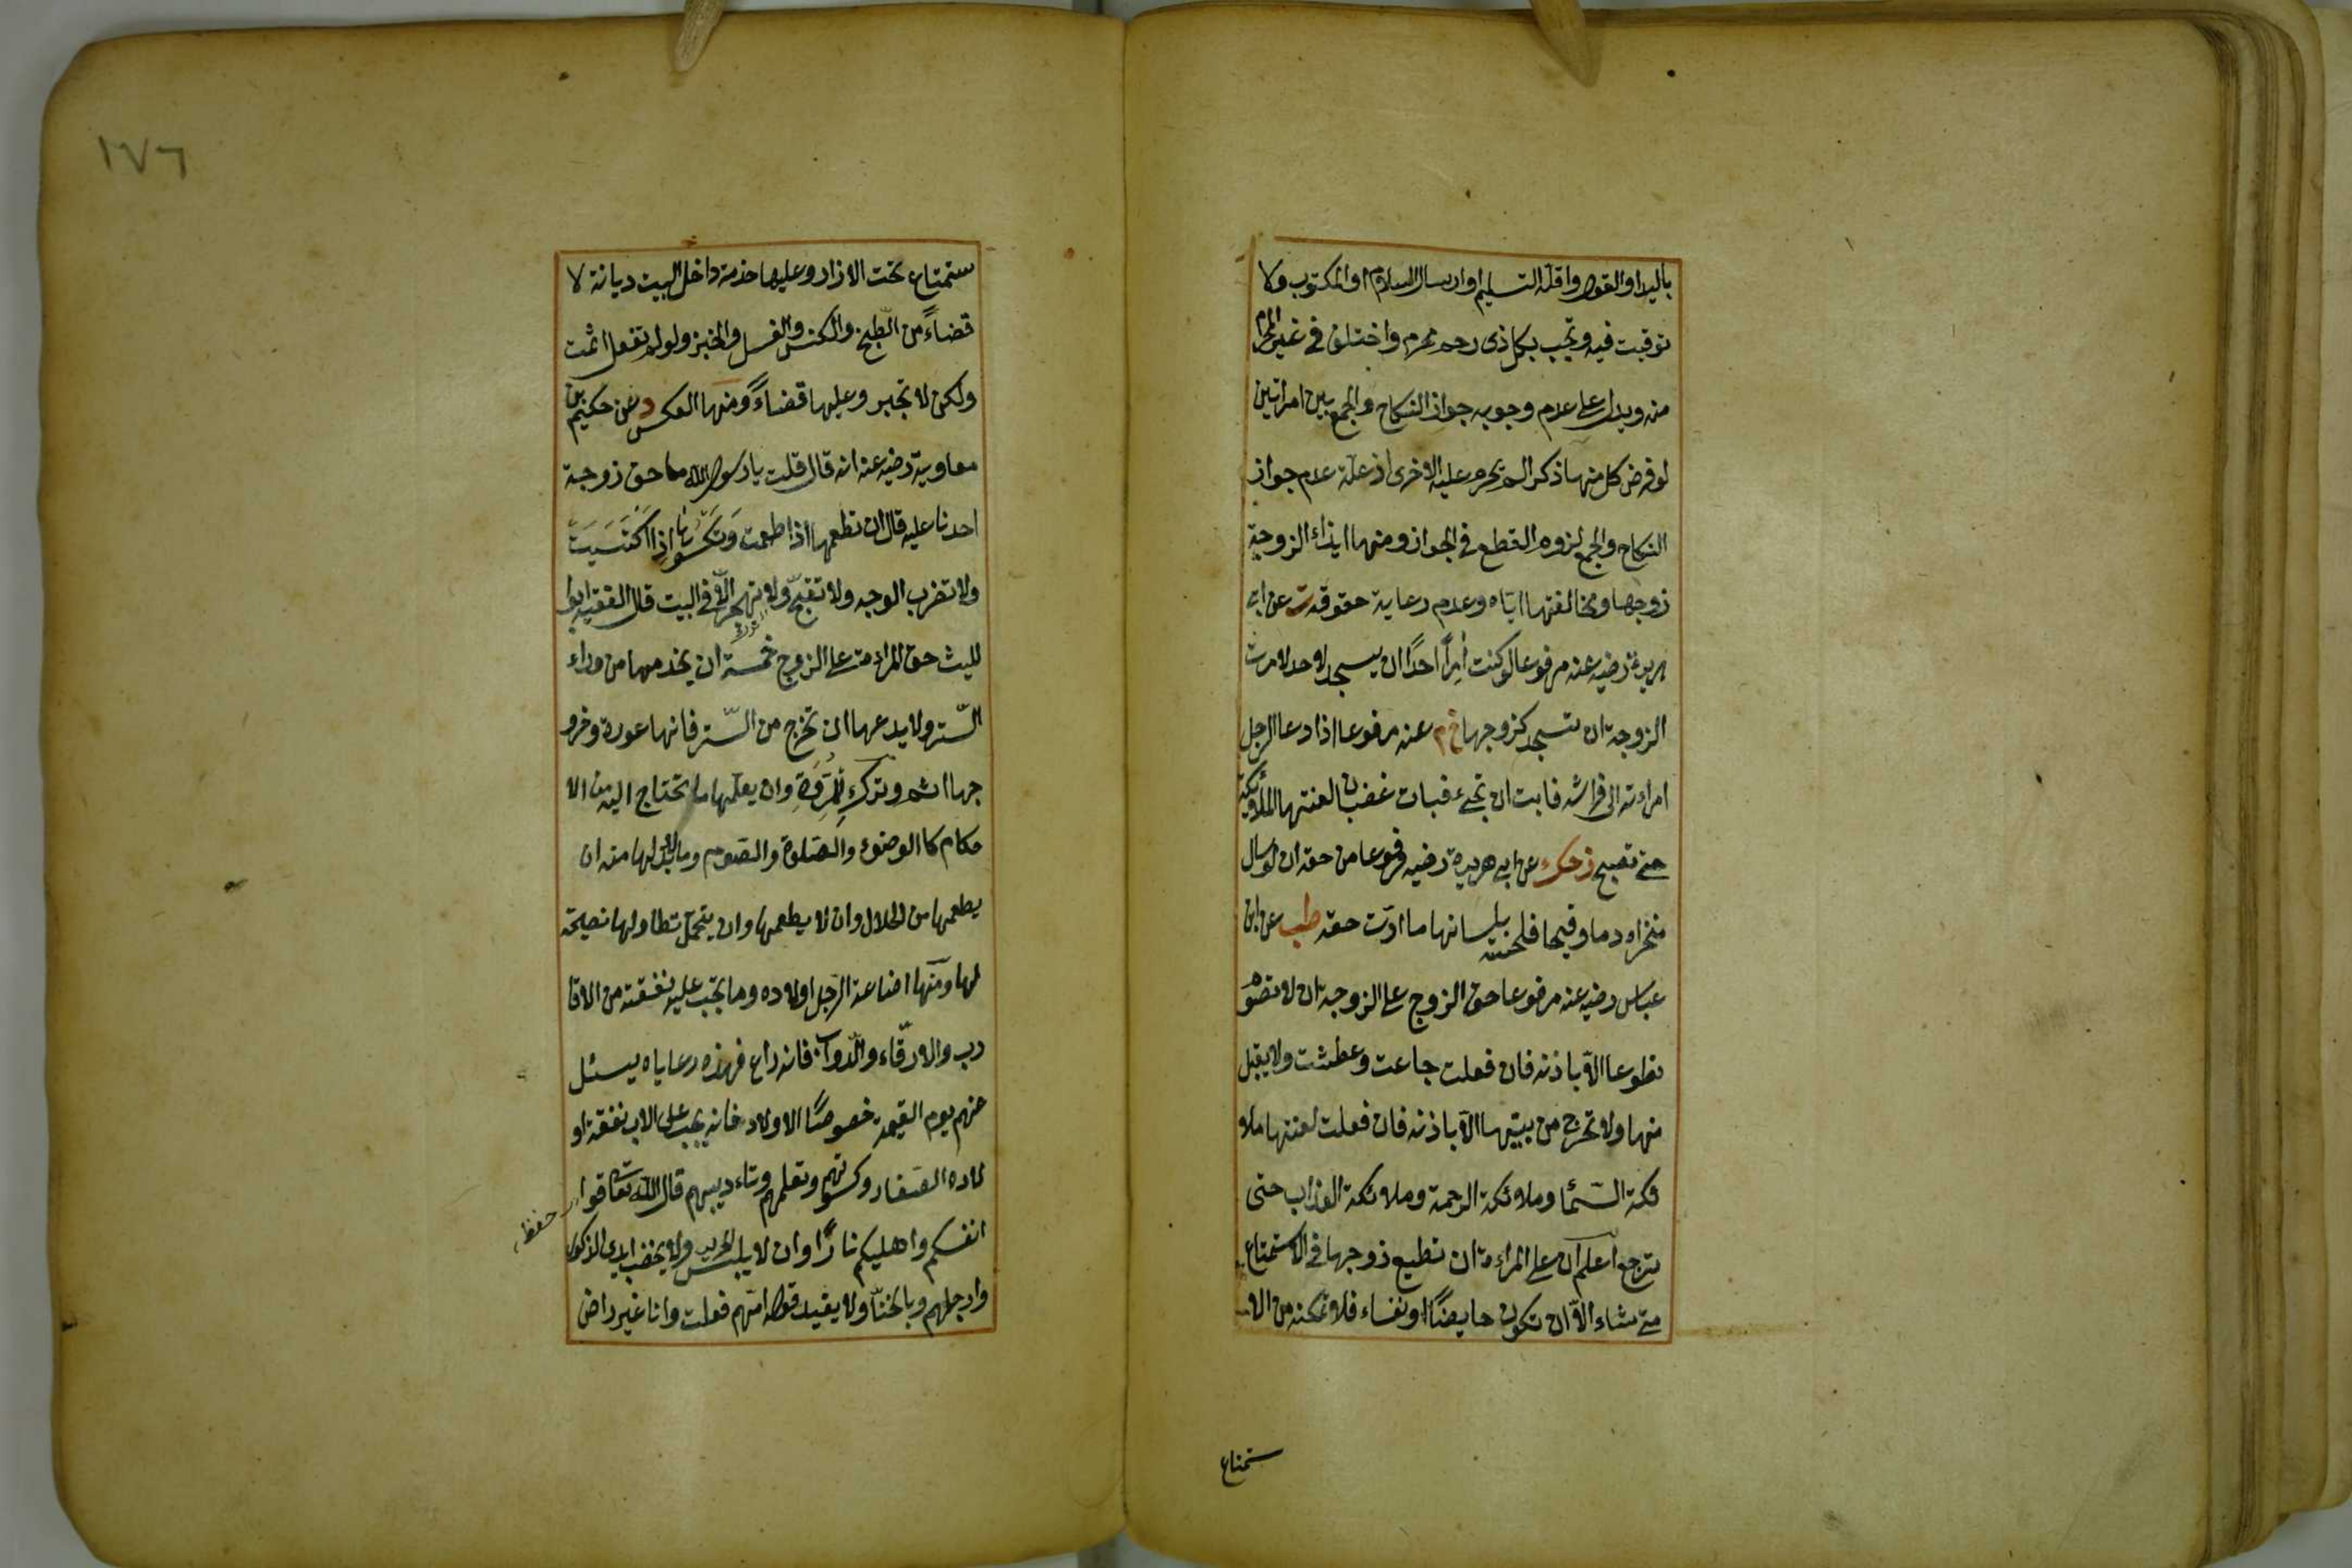 باليد او القول واقله التسليم او ارسال السلام او المكتوب ولا
توقيت فيه ويجب بكل ذى رحم محرم واختلف فى غير المحرم
منه ويدل على عدم وجوبه جواز النكاح والجمع بين امراتين
لو فرض كل منهما ذكرا لم يحرم عليه الاخرى اذ علة عدم جواز
النكاح والجمع لزوم القطع فى الجواز ومنها ايذاء الزوجة
زوجها ومخالفتها اياه وعدم رعاية حقوقه ت عن ابى
هريرة رضيه عنه مرفوعا لو كنت اٰمرًا احدًا ان يسجد لاحد لامرت
الزوجة ان تسجد لزوجها خ م عنه مرفوعا اذا دعا الرجل
امراءته الى فراشه فابت ان تجئ فبات غضبان لعنتها الملائكة
حتى تصبح ز حك عن ابى هريرة رضيه مرفوعا من حقه ان لو سال
منخراه دما وقيحا فلحسته بلسانها ما ادّت حقه طب عن ابن
عباس رضيه عنه مرفوعا حق الزوج على الزوجة ان لا تصوم
تطوعا الّا باذنه فان فعلت جاعت وعطشت ولا يقبل
منها ولا تخرج من بيتها الّا باذنه فان فعلت لعنتها ملا
ئكة السّماٰ وملائكة الرحمة وملائكة العذاب حتى
ترجع اعلم ان على المراءة ان تطيع زوجها فى الاستمتاع
متى شاء الّا ان تكون حايضًا او نفساء فلا تمكنه من الا
ستمتاع
١٧٦
ستمتاع تحت الازار وعليها خدمة داخل البيت ديانة لا
قضاءً من الطّبخ والكنس والغسل والخبز ولو لم تفعل اثمت
ولكن لا تجبر وعليها قضاءً ومنها العكس د عن حكيم بن
معاوية رضيه عنه انه قال قلت يا رسول الله ما حق زوجة
احدنا عليه قال ان تطعمها اذا طعمت وَتكسُوهَا اذا اكتَسَيَتَ
ولا تضرب الوجه ولا تقبّح ولا تهجر الّا فى البيت قال الفقيه ابوا
لليث حق المراءة على الزوج خمسة ان يخدمها من وراء
السّتر ولا يدعها ان تخرج من السّتر فانها عورة وخرو
جها اثم وترك للمُرُوَّةِ وان يعلّمها ما تحتاج اليه من الا
حكام كا الوضوء والصّلوة والصّوم وما لا بدّ لها منه ان
يطعمها من الحلال وان لا يطعمها وان يتحمّل تطاولها نصيحة
لها ومنها اضاعة الرّجل اولاده وما يجب عليه نفقته من الاقا
رب والارقّاء والدّوابّ فانه راع فهذه رعاياه يسئل
عنهم يوم القيمة خصوصًا الاولاد فانه يجب على الاب نفقة او
لاده الصّغار وكسوتهم وتعلمهم وتاءديبهم قال الله تعالى قوا
حفظ
انفسكم واهليكم نارًا وان لا يلبس الحرير ولا يخضب ايدى الذكور
وارجلهم وبالحنّا ولا يفيد قول امّهم فعلت وانا غير راض